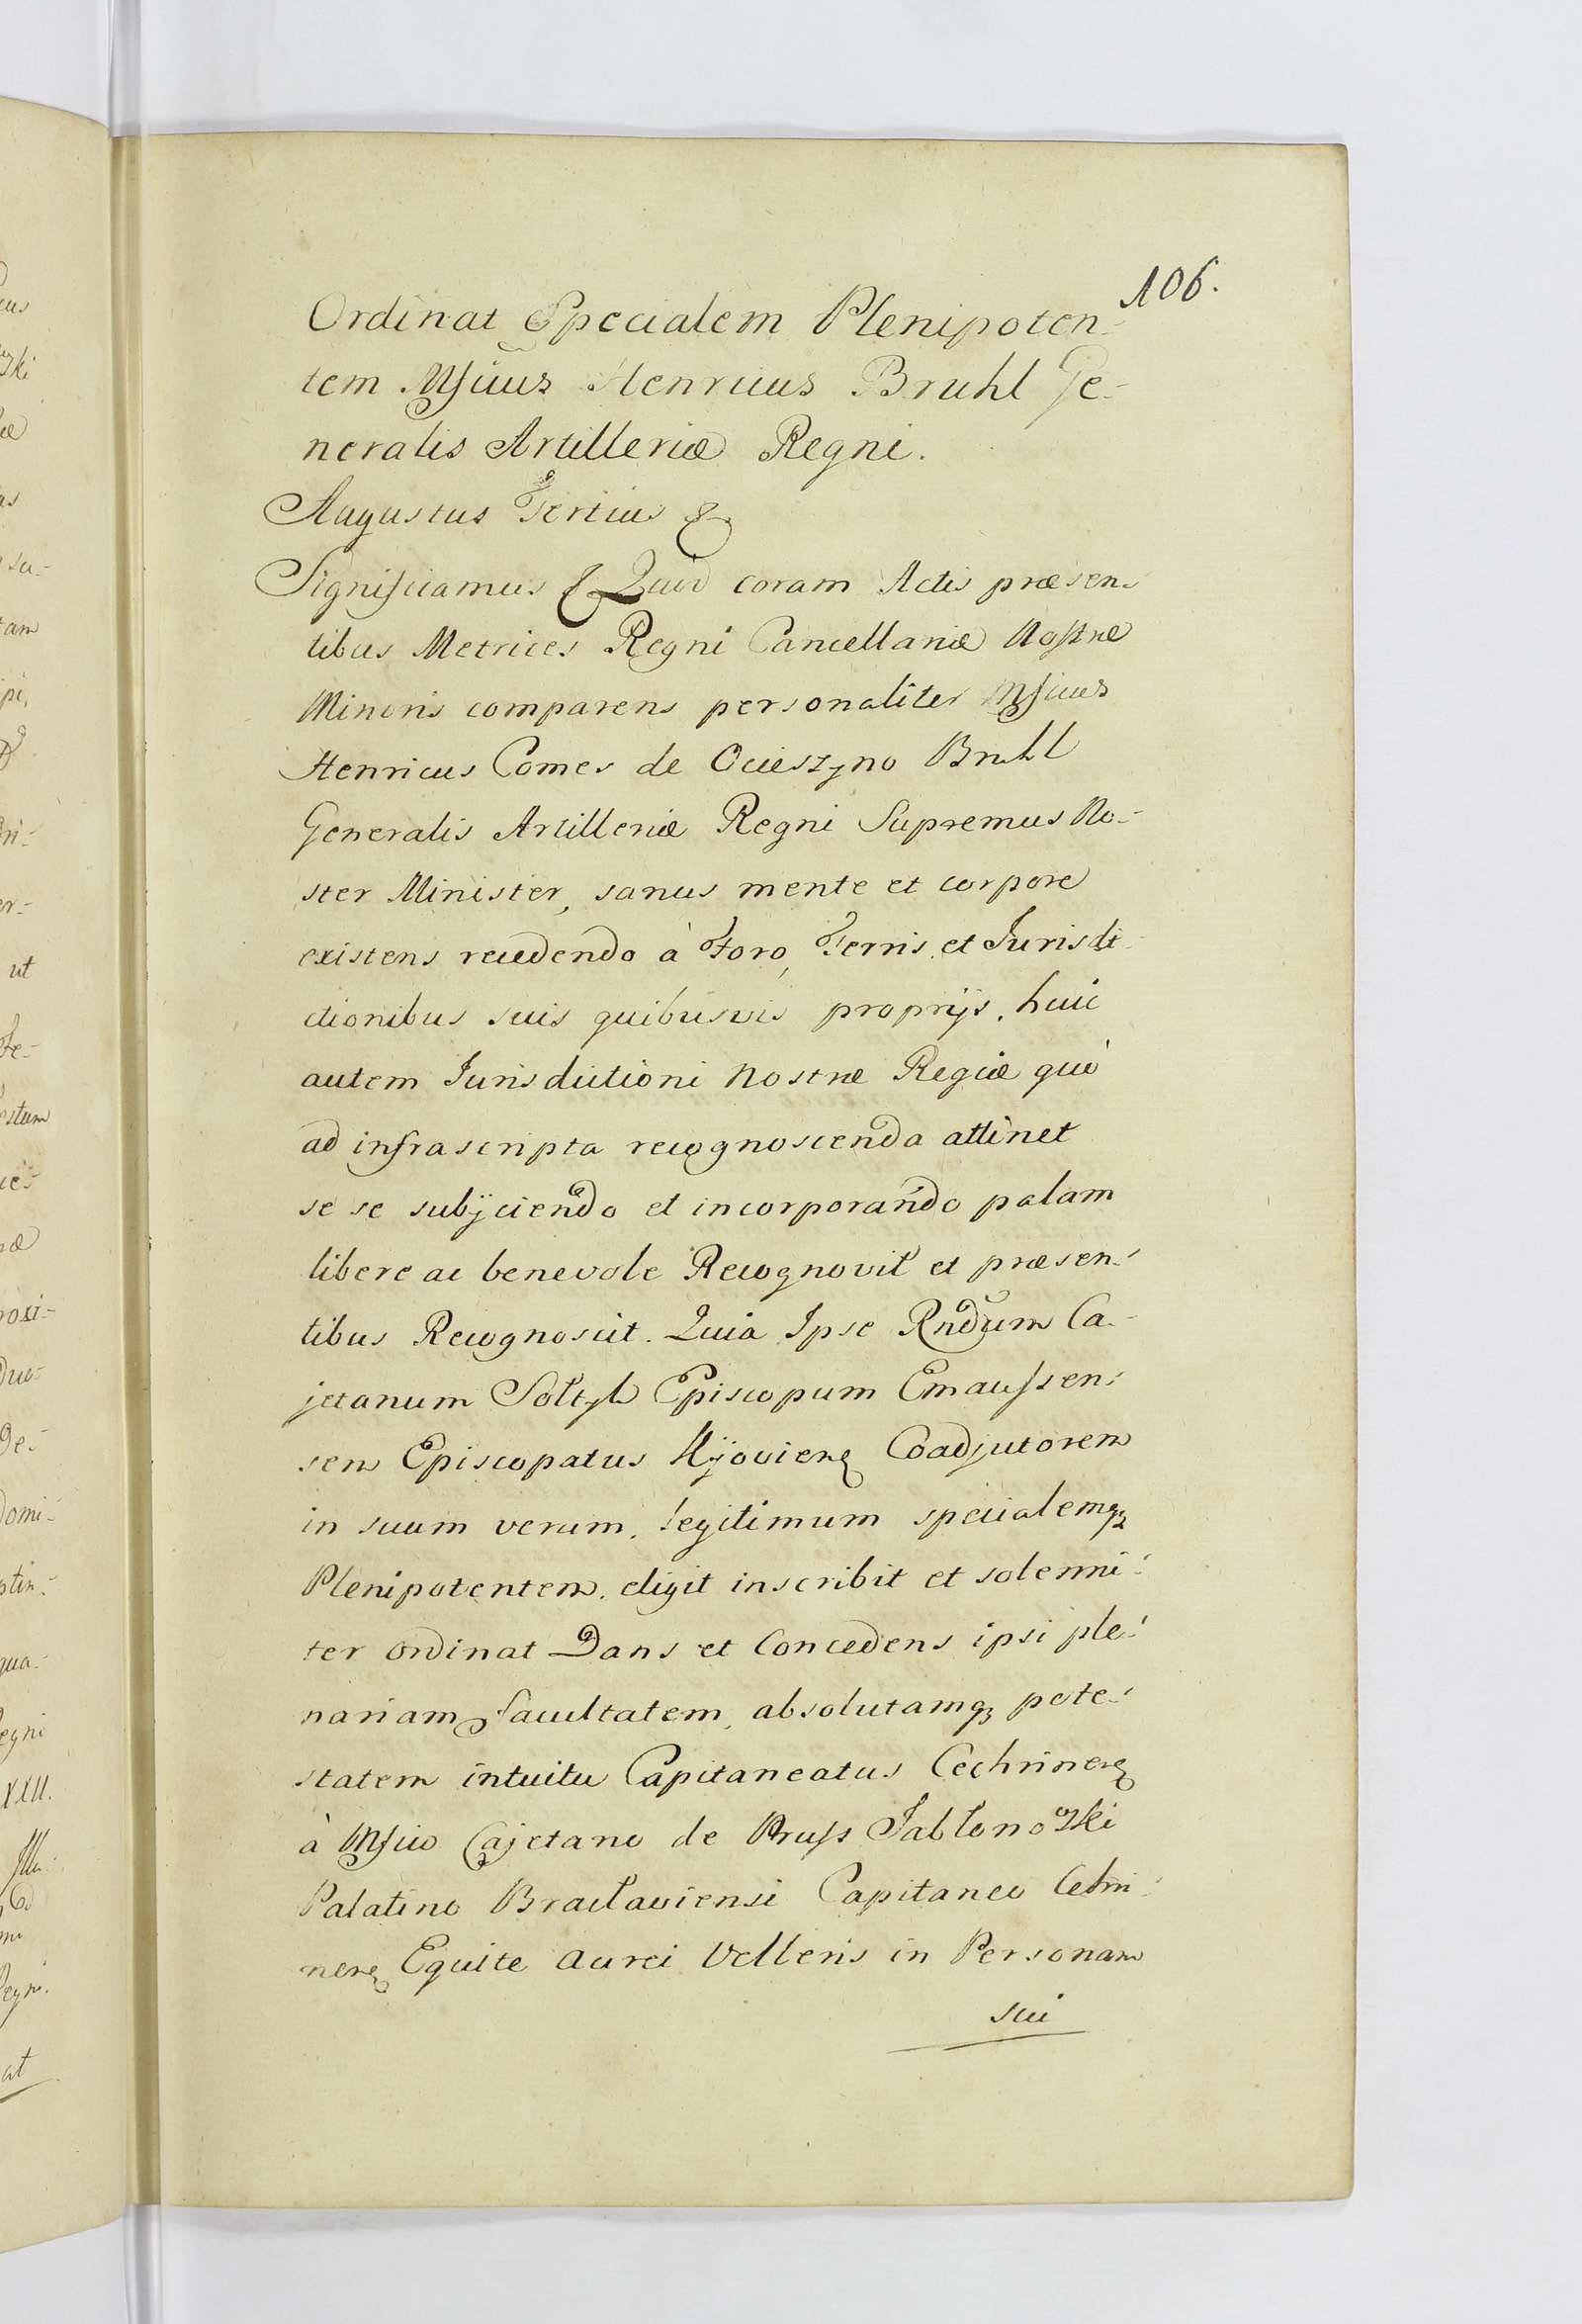 106.
Ordinat Specialem Plenipoten-
tem Mficus Henricus Bruhl Ge-
neralis Artilleriæ Regni.
Augustus Tertius &
Significamus & Quod coram Actis præsen-
tibus Metrices Regni Cancellariæ Nostræ
Minoris comparens personaliter Mficus
Henricus Comes de Ocieszyno Bruhl
Generalis Artilleriæ Regni Supremus No-
ster Minister, sanus mente et corpore
existens recedendo à Foro, Terris, et Jurisdi-
ctionibus suis quibusvis proprijs, huic
autem Jurisdictioni Nostræ Regiæ quò
ad infrascripta recognoscenda attinet
se se subijciendo et incorporando palam
libere ac benevole Recognovit et præsen-
tibus Recognoscit. Quia Ipse Rndum Ca-
jetanum Sołtyk Episcopum Emaussen-
sem Episcopatus Kijovien Coadjutorem
in suum verum, legitimum specialemq3
Plenipotentem, eligit inscribit et solenni-
ter ordinat Dans et Concedens ipsi ple-
nariam facultatem, absolutamq3 pote-
statem intuitu Capitaneatus Cechrinen
à Mfico Cajetano de Pruss Jabłonowski
Palatino Bracłaviensi Capitaneo Cehri-
nen Equite Aurei Velleris in Personam
sui